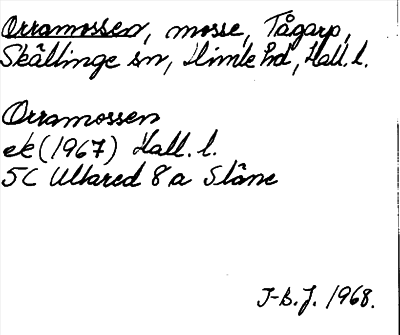 Orramossen, mosse, Tågarp,
Skällinge sn, Himle hd, Hall. l.
Orramossen
ek (1967) Hall. l.
5C Ullared 8 a Släne
J-B. J. 1968.